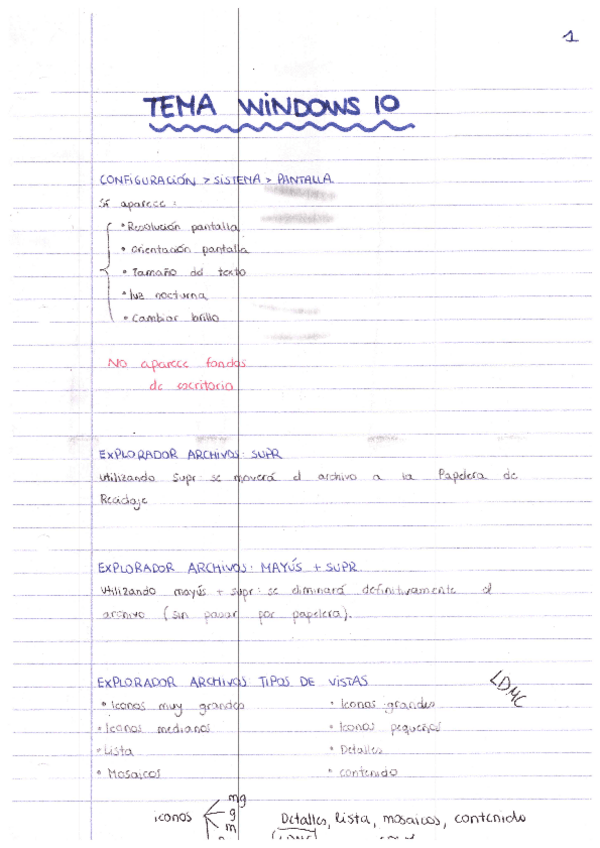 1
TEMA WINDOWS 10
CONFIGURACIÓN > SISTEMA > PANTALLA
Sí aparece:
• Resolución pantalla
• orientación pantalla
• Tamaño del texto
• luz nocturna
• Cambiar brillo
No aparece fondos
de escritorio
EXPLORADOR ARCHIVOS: SUPR
Utilizando Supr: se moverá el archivo a la Papelera de
Reciclaje
EXPLORADOR ARCHIVOS: MAYÚS + SUPR
Utilizando mayús + supr: se eliminará definitivamente el
archivo (sin pasar por papelera).
EXPLORADOR ARCHIVOS TIPOS DE VISTAS
LDMC
• Iconos muy grandes • Iconos grandes
• Iconos medianos • Iconos pequeños
• Lista • Detalles
• Mosaicos • contenido
mg
iconos g Detalles, lista, mosaicos, contenido
m